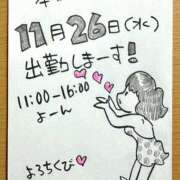 11月26日(水)
出勤しまーす!
11:00-16:00
よーん
よろちくび